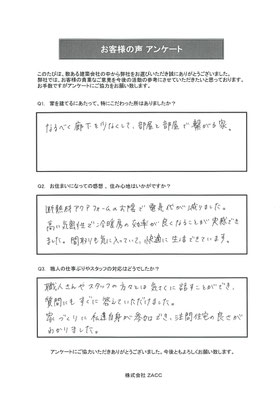 お客様の声 アンケート
このたびは、数ある建築会社の中から弊社をお選びいただき誠にありがとうございました。
弊社では、お客様の貴重なご意見を今後の活動の参考にさせていただきたいと思っております。
お手数ですがアンケートにご協力をお願い致します。
Q1. 家を建てるにあたって、特にこだわった所はありましたか?
なるべく廊下を少なくして、部屋と部屋で繋がる家。
Q2. お住まいになっての感想、住み心地はいかがですか?
断熱材アクアフォームのお陰で電気代が減りました。
高い気密性で冷暖房の効率が良くなることが実感でき
ました。間取りも気に入っていて、快適に生活できています。
Q3. 職人の仕事ぶりやスタッフの対応はどうでしたか?
職人さんやスタッフの方々とは気さくに話すことができ、
質問にもすぐに答えていただけました。
家づくりに私達自身が参加でき、注文住宅の良さが
わかりました。
アンケートにご協力いただきありがとうございました。今後ともよろしくお願い致します。
株式会社 ZACC